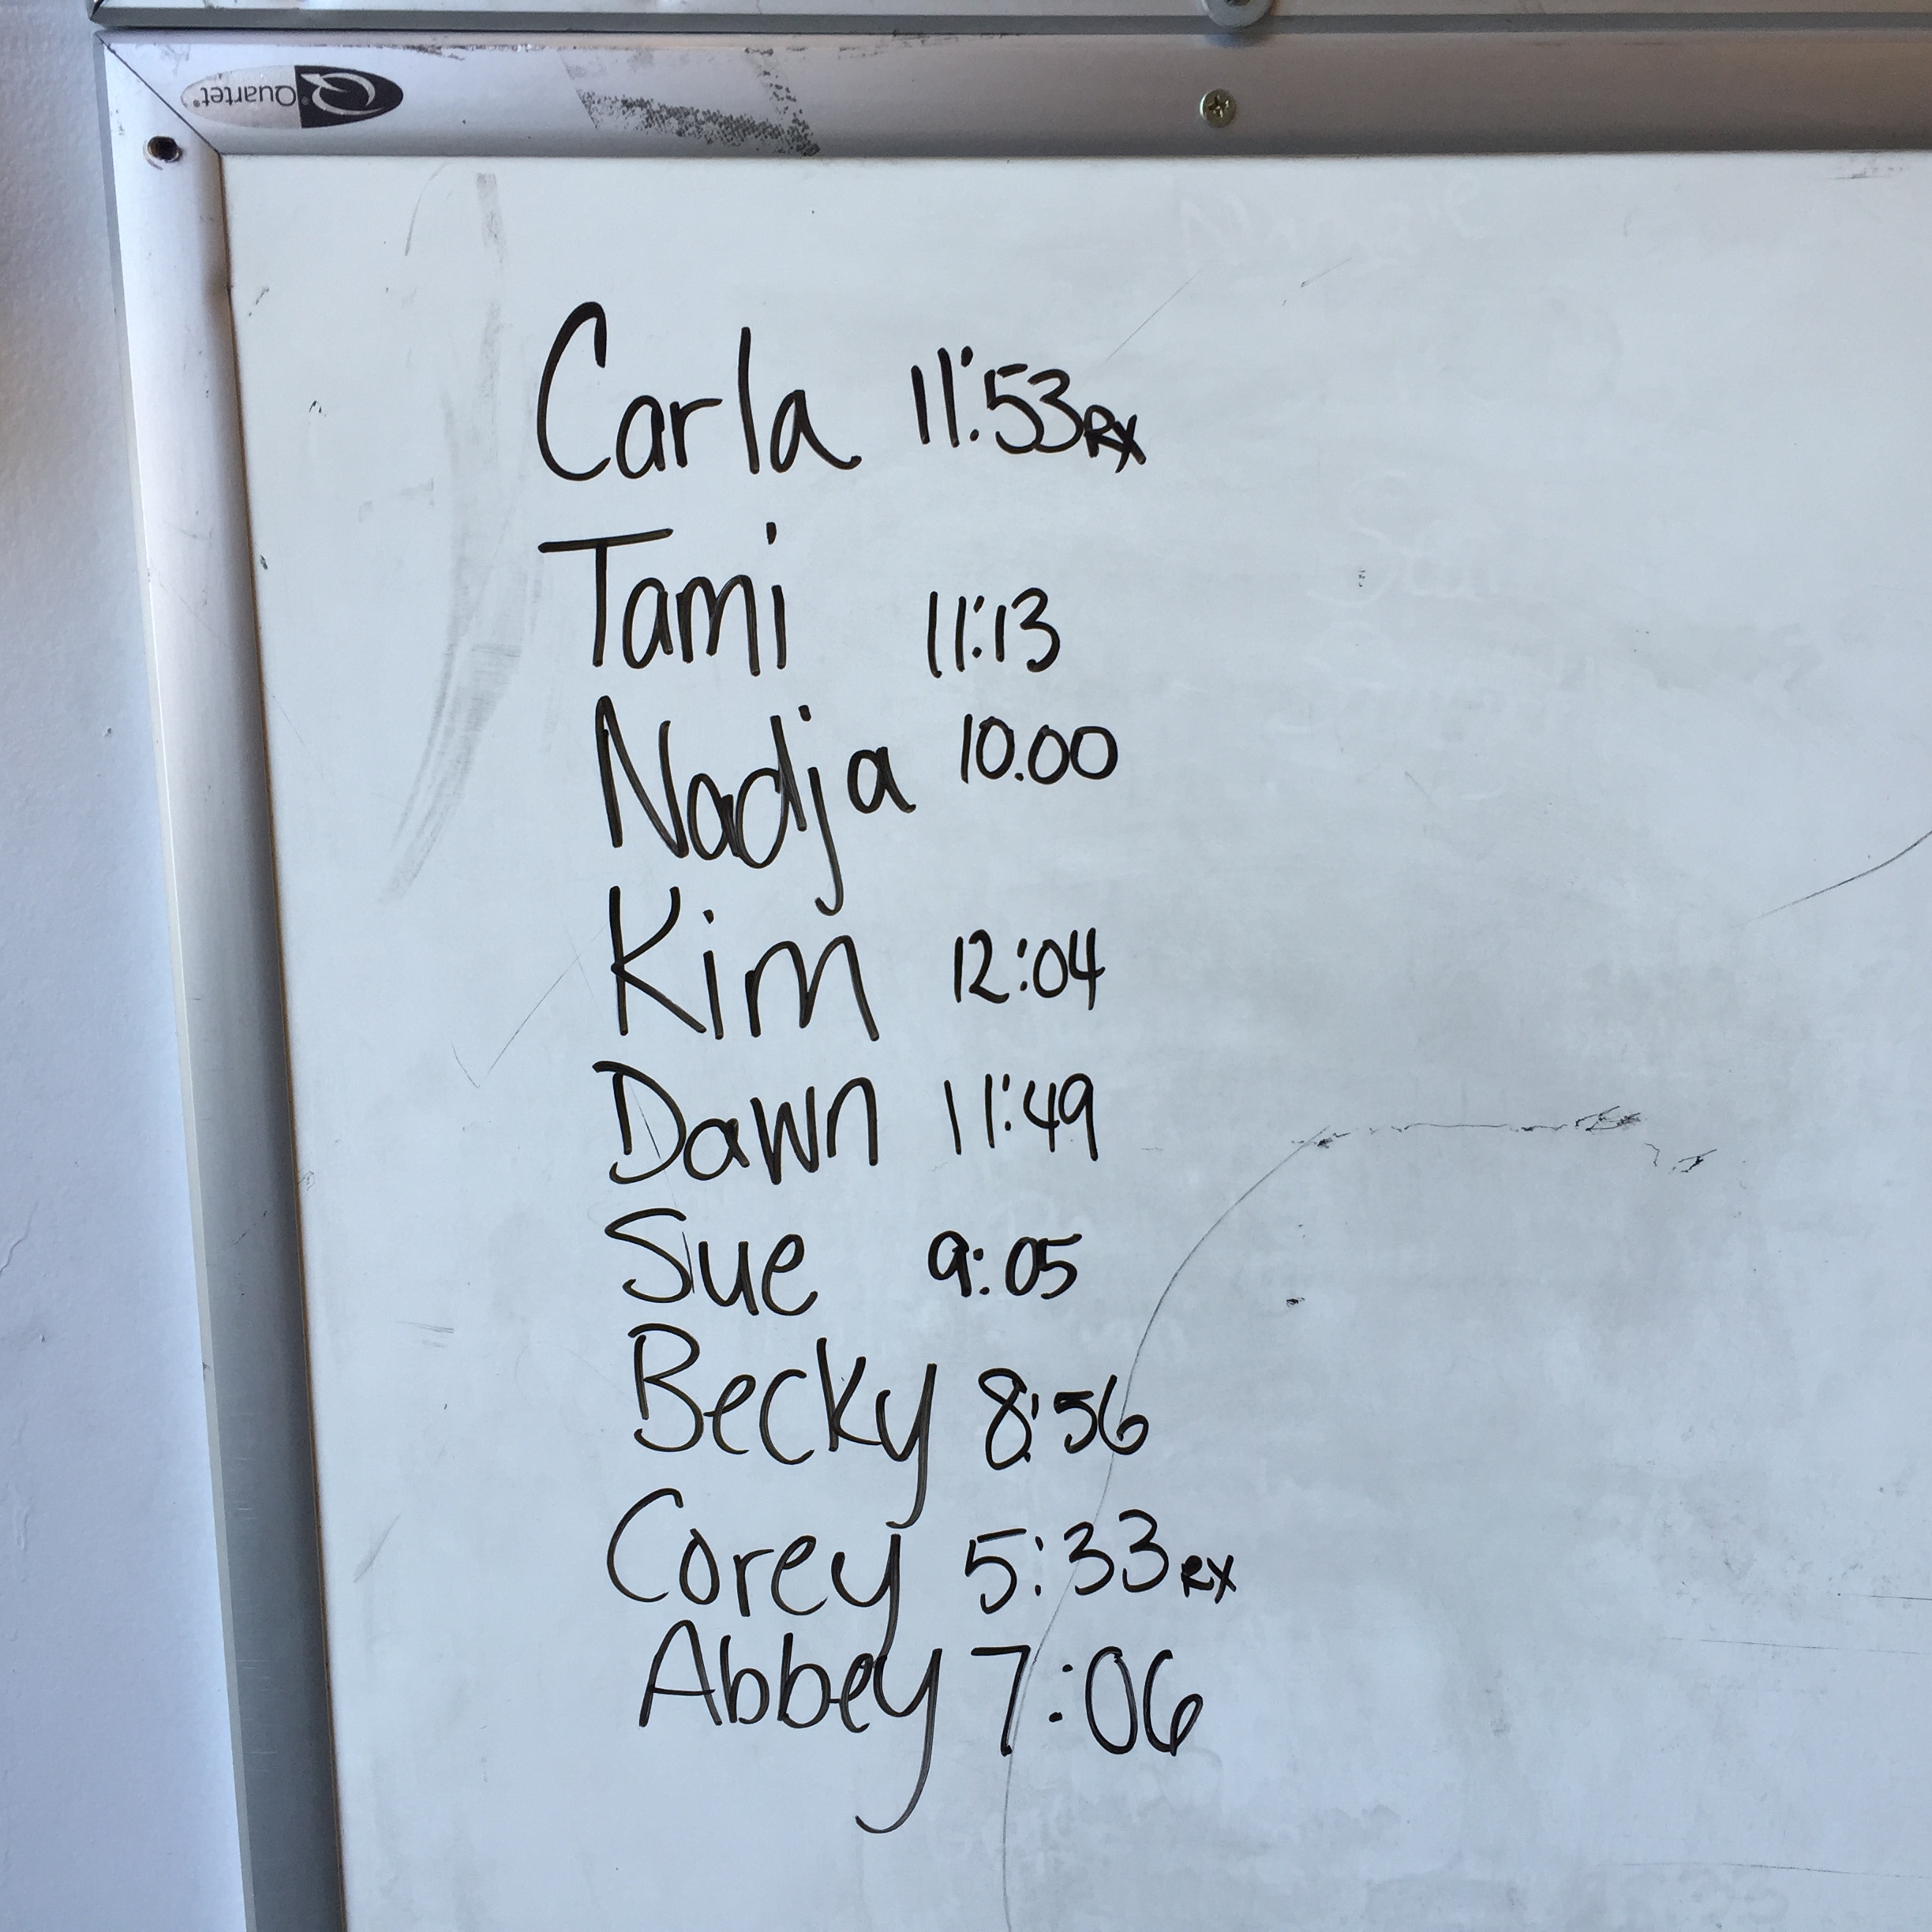 Quartet
Carla 11:53 RX
Tami 11:13
Nadja 10.00
Kim 12:04
Dawn 11:49
Sue 9:05
Becky 8:56
Corey 5:33 RX
Abbey 7:06